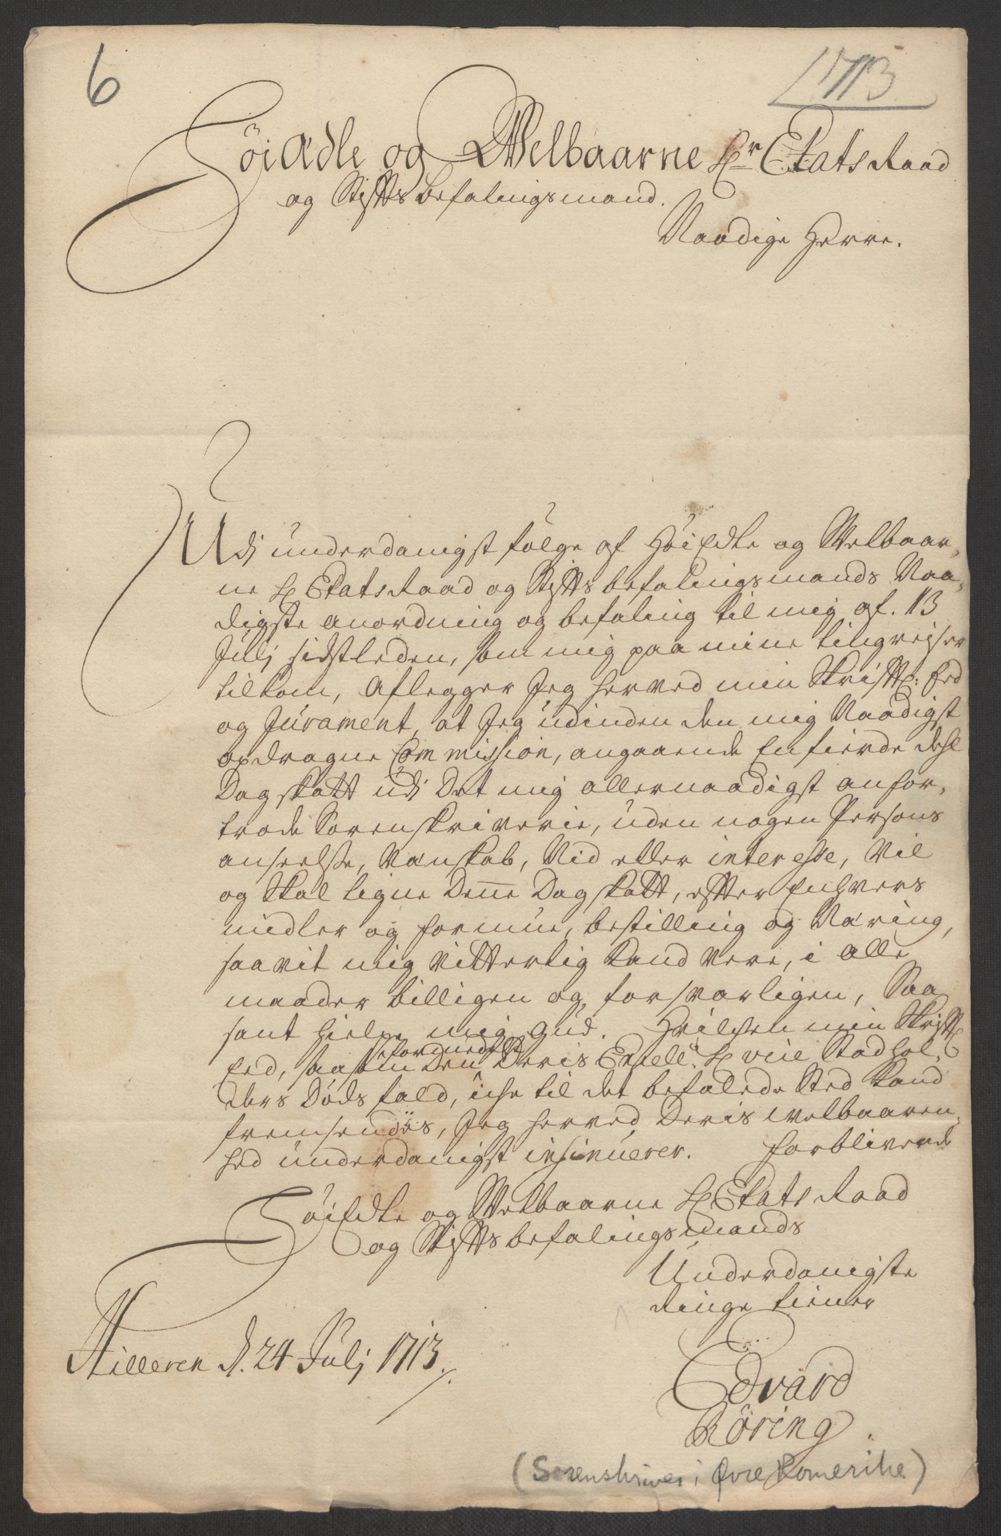 6
1713
HöiAdle og Welbaarne Hr EtatsRaad
og Stiftsbefalingsmand.
Naadige Herre.
Udj underdanigst følge af HöiEdle og Welbaar,
ne H EtatsRaad og Stiftsbefalingsmands Naa,
digste anordning og befaling til mig af. 13
Julj sidstleden, som mig paa mine tingrejser
tilkom, Aflegger Jeg herved min Skriftl: Eed
og Jurament, at Jeg udinden den mig Naadigst
opdragne Commission, angaaende En fierde deel
Dagskatt udj Det mig allernaadigst anfor,
trode Sorenskriverie, uden nogen Persons
anseelse, Vanskab, Nid eller interesse, Vil
og Skal ligne Denne Dagskatt, efter Enhvers
midler og formue, bestilling og Næring,
saavit mig Vitterlig Kand Vere, i alle
maader billigen og forsvarligen, Saa
sant hielpe mig Gud. Hvilchen min Skriftl
Eed, saasom Deris Excell: H vice Stadhol,
ders Døds fald, iche til det befalede Sted Kand
fremsendes, Jeg herved Deris welbaaren,
hed underdanigst insinuerer. forblivende
HöiEdle og Welbaarne H EtatsRaad
og Stiftsbefalingsmands
Underdanigste
ringe tiener
Hilleren d. 24 Julj 1713.
Edvard
Röring.
(Sorenskriver i Øvre Romerike)